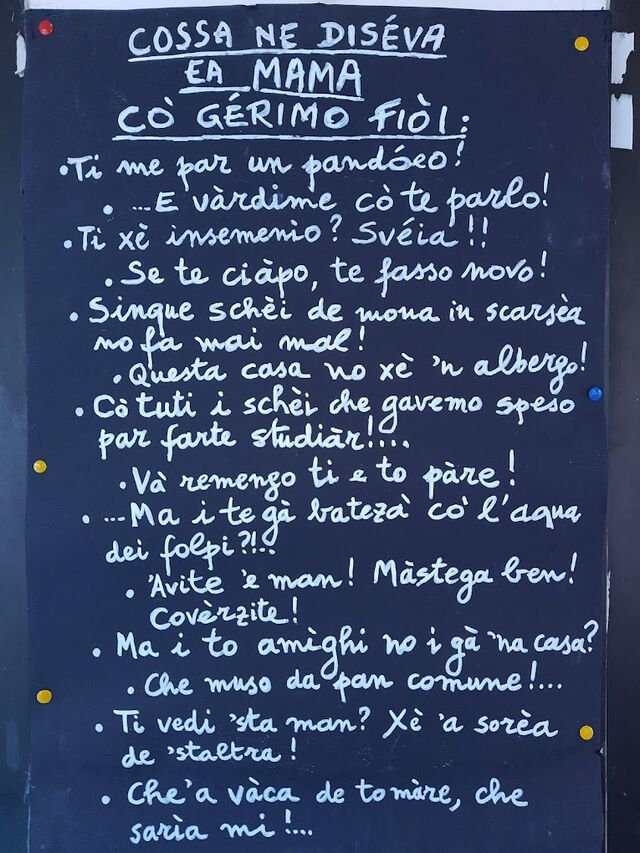 COSSA NE DISÉVA
EA MAMA
CÒ GÉRIMO FIÒI:
• Ti me par un pandóeo!
• ...E vàrdime cò te parlo!
• Ti xè insemenio? Svéia!!
• Se te ciàpo, te fasso novo!
• Sinque schèi de mona in scarsèa
no fa mai mal!
• Questa casa no xè 'n albergo!
• Cò tuti i schèi che gavemo speso
par farte studiàr!...
• Và remengo ti e to pàre!
• ...Ma i te gà batezà cò l'aqua
dei folpi?!..
• 'Avite 'e man! Màstega ben!
Covèrzite!
• Ma i to amìghi no i gà 'na casa?
• Che muso da pan comune!...
• Ti vedi 'sta man? Xè 'a sorèa
de 'staltra!
• Che 'a vàca de to màre, che
sarìa mi!...